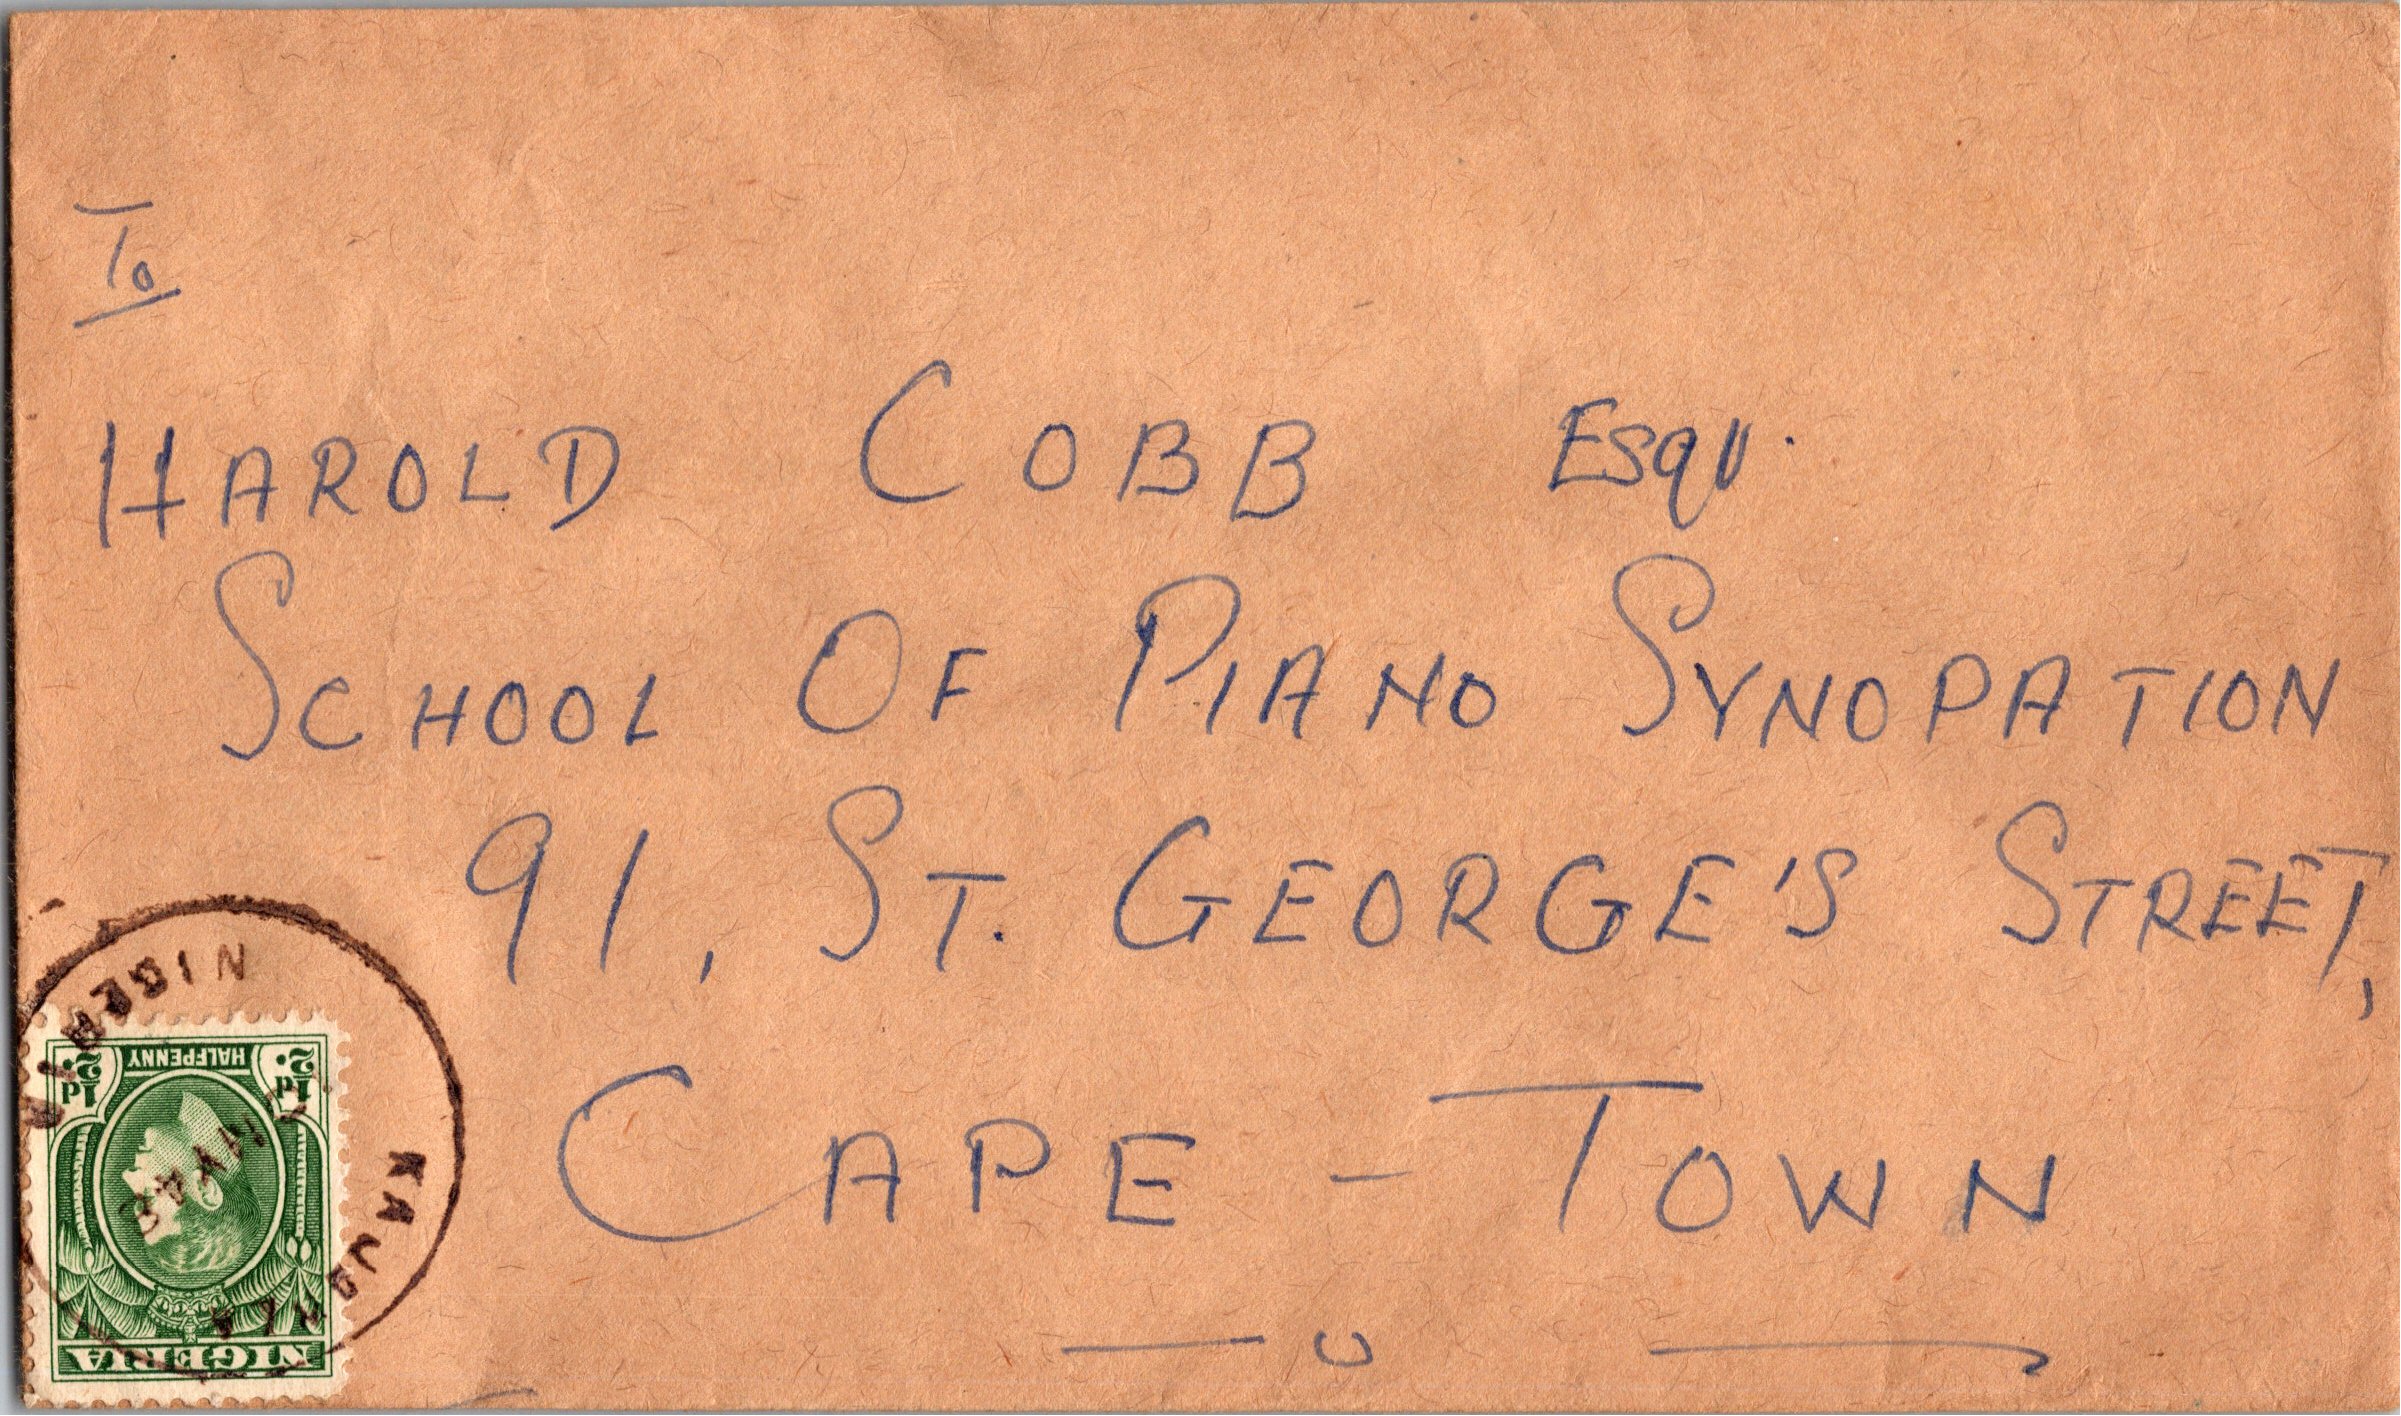 To
HAROLD COBB Esqr.
SCHOOL OF PIANO SYNOPATION
91, ST. GEORGE'S STREET,
CAPE - TOWN
NIGERIA
½d HALFPENNY ½d
NIGERIA